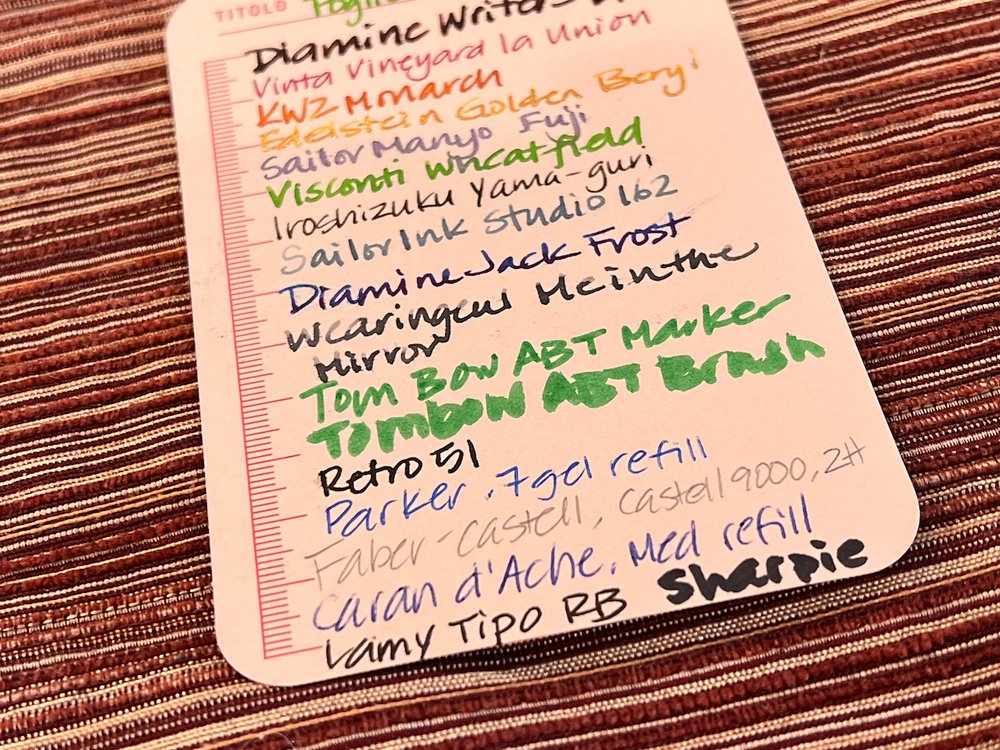 TITOLO
Diamine Writer
Vinta Vineyard la Union
KWZ Monarch
Edelstein Golden Beryl
Sailor Manyo Fuji
Visconti Wheatfield
Iroshizuku Yama-guri
Sailor Ink Studio 162
Diamine Jack Frost
Wearingeul He in the
Mirror
Tom Bow ABT Marker
Tombow ABT Brush
Retro 51
Parker .7 gel refill
Faber-Castell, Castell 9000, 2H
Caran d'Ache, Med refill
Lamy Tipo RB Sharpie